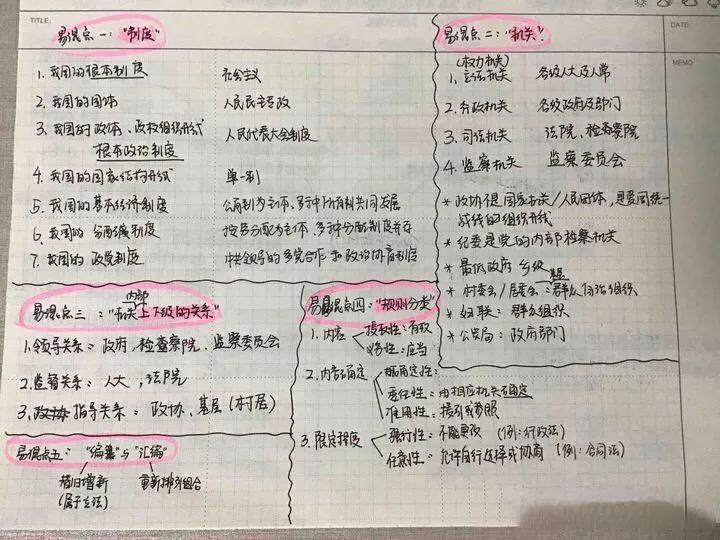 TITLE:
DATE:
MEMO
易混点一："制度"
1. 我国的根本制度 社会主义
2. 我国的国体 人民民主专政
3. 我国的政体、政权组织形式 人民代表大会制度
根本政治制度
4. 我国的国家结构形式 单一制
5. 我国的基本经济制度 公有制为主体、多种所有制共同发展
6. 我国的分配制度 按劳分配为主体、多种分配制度并存
7. 我国的政党制度 中共领导的多党合作和政治协商制度
易混点二："机关"
(权力机关)
1. 立法机关 各级人大及人常
2. 行政机关 各级政府及部门
3. 司法机关 法院、检查察院
4. 监察机关 监察委员会
* 政协不是国家机关/人民团体，是爱国统一
战线的组织形式
* 纪委是党的内部检察机关
* 最低政府 乡级
* 村委会/居委会：群众自治组织
基层
* 妇联：群众组织
* 公安局：政府部门
易混点三："机关上下级的关系"
内部
1. 领导关系：政府、检查察院、监察委员会
2. 监督关系：人大、法院
3. 政协 指导关系：政协、基层(村居)
易混点四："规则分类"
1. 内容
授权性：有权
义务性：应当
2. 内容确定
确定性：
委任性：由相应机关确定
准用性：援引或参照
3. 限定程度
强行性：不能更改 (例：行政法)
任意性：允许自行选择或协商 (例：合同法)
易混点五："编纂"与"汇编"
除旧增新 重新排列组合
(属于立法)